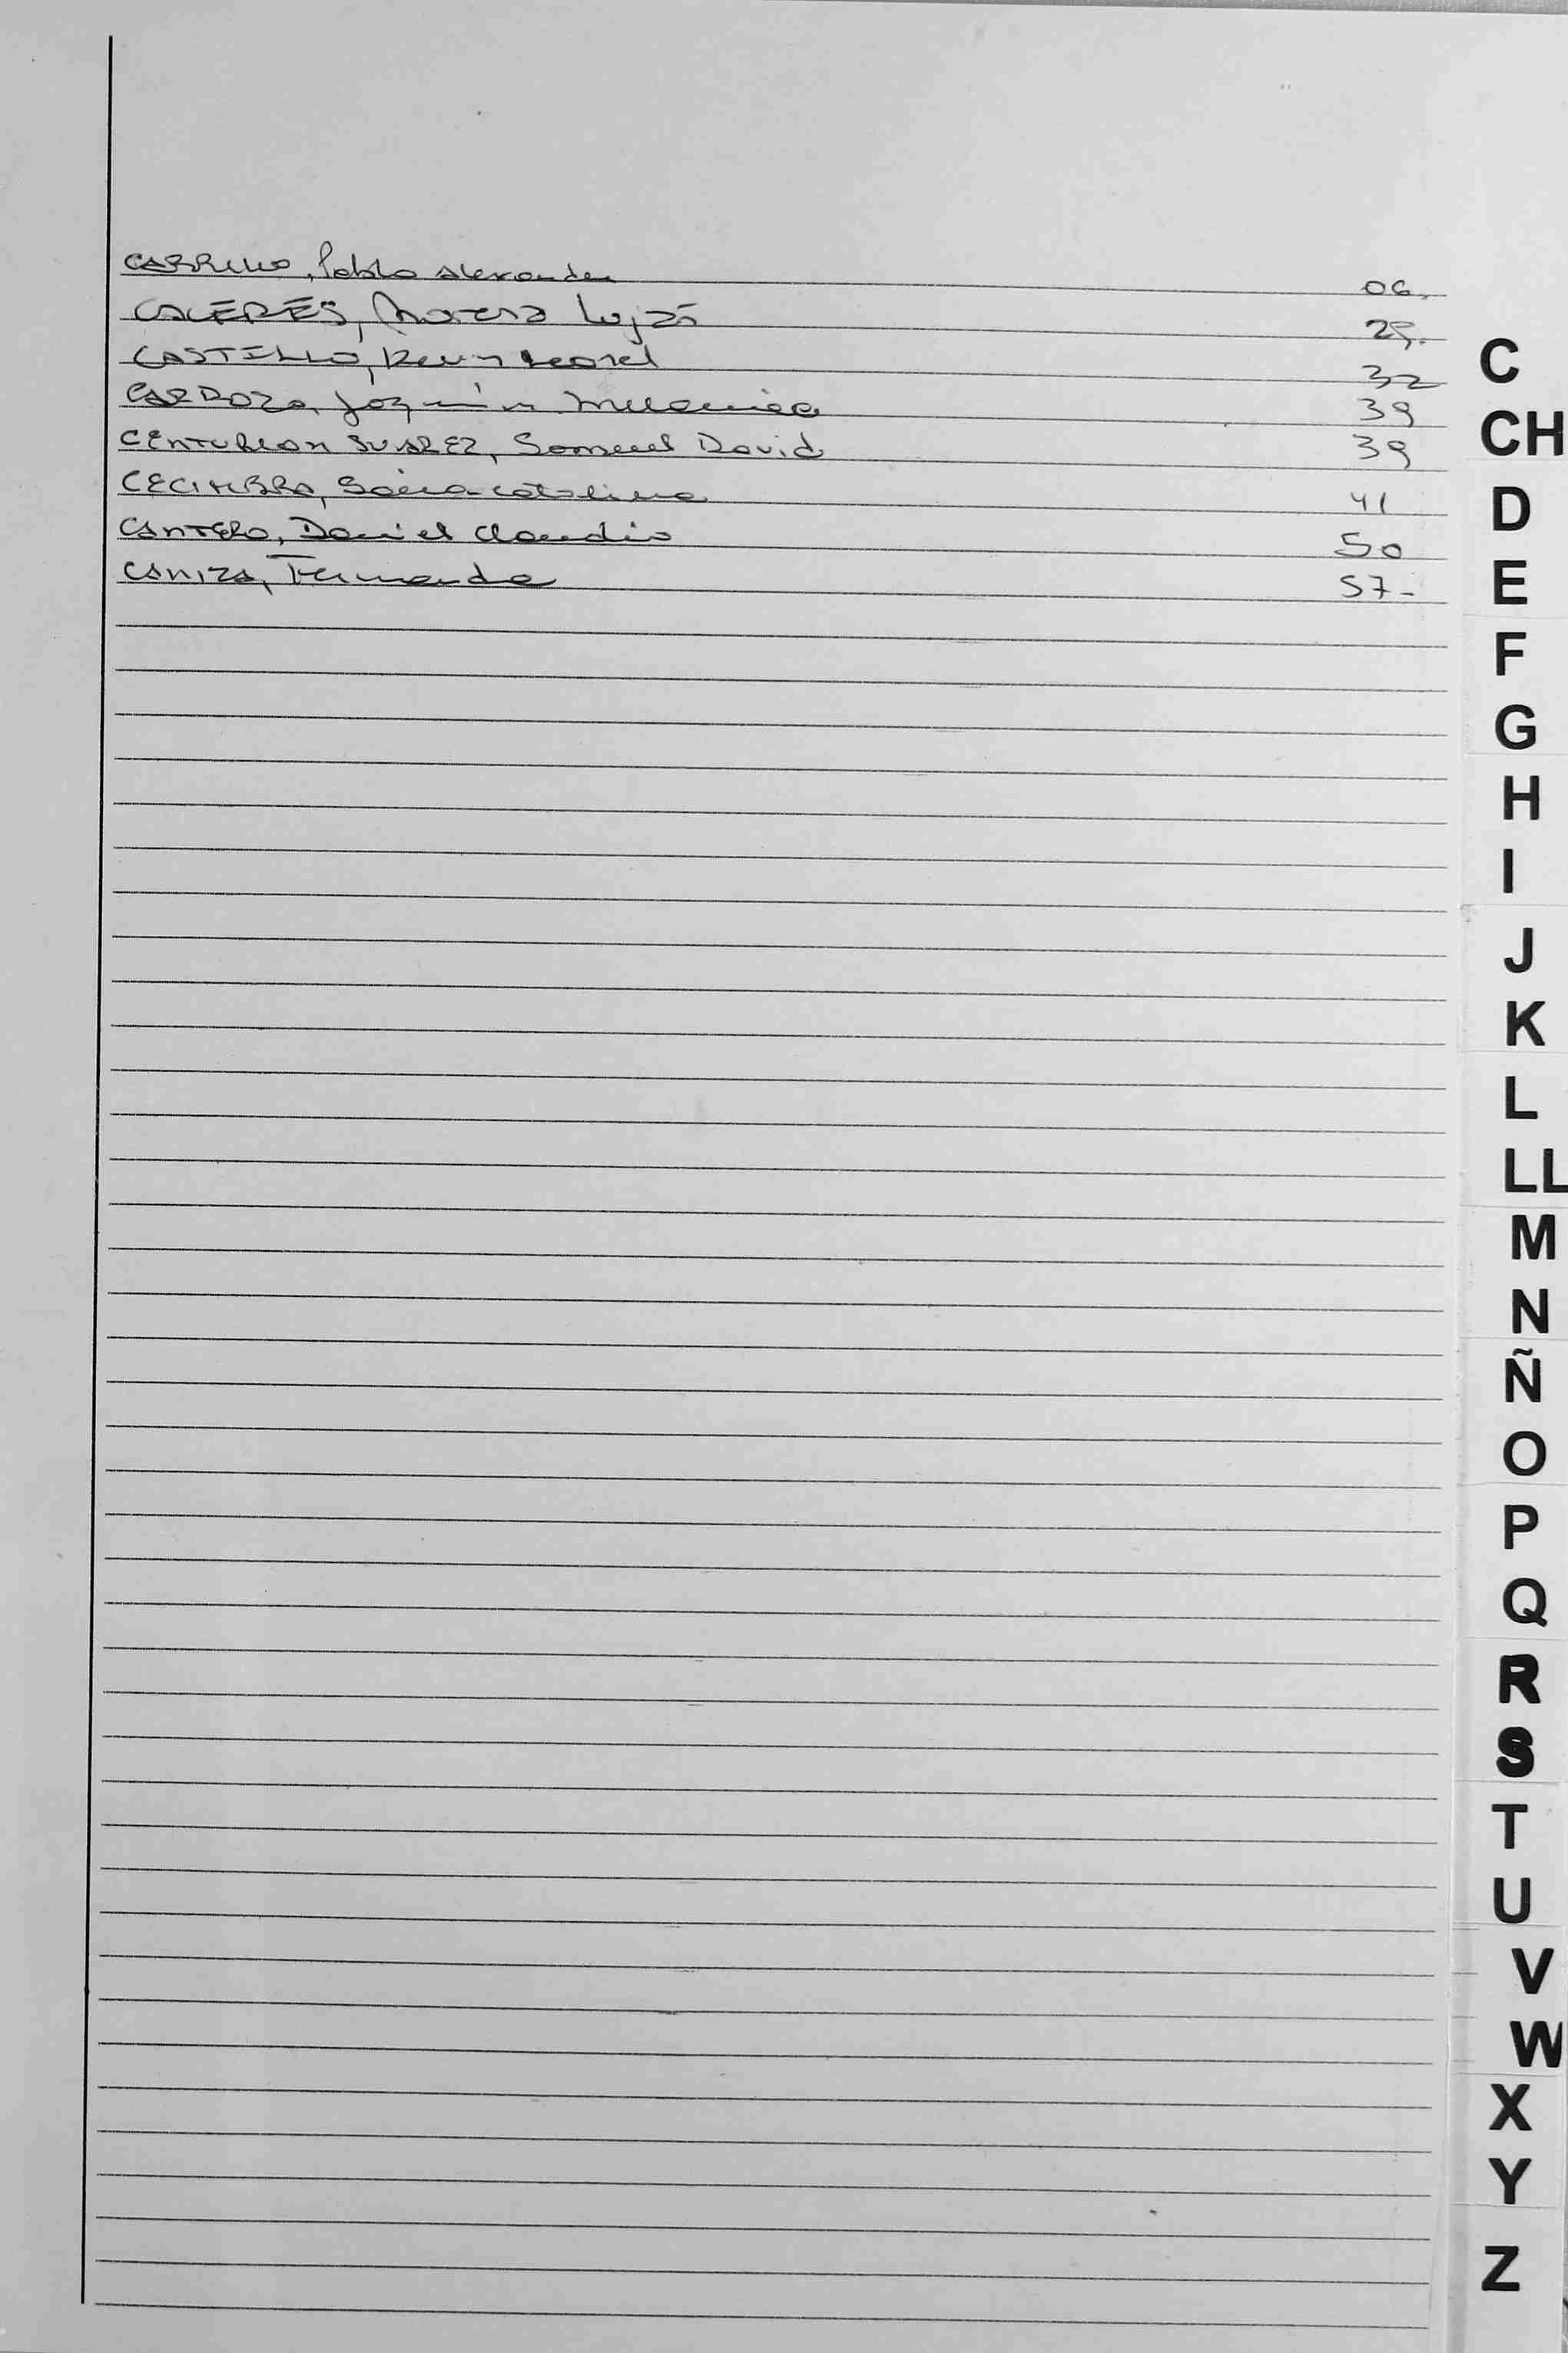 CARRILLO, Pablo Alexander 06.
CACERES, Morena Luján 25.
CASTILLO, Kevin Leonel 32
CARDOZO, Joaquín 39
CENTURION SUAREZ, Samuel David 39
CECIMBRA, Catalina 41
CANTERO, Daniel Claudio 50
CANIZA, Fernanda 57-
C
CH
D
E
F
G
H
I
J
K
L
LL
M
N
Ñ
O
P
Q
R
S
T
U
V
W
X
Y
Z